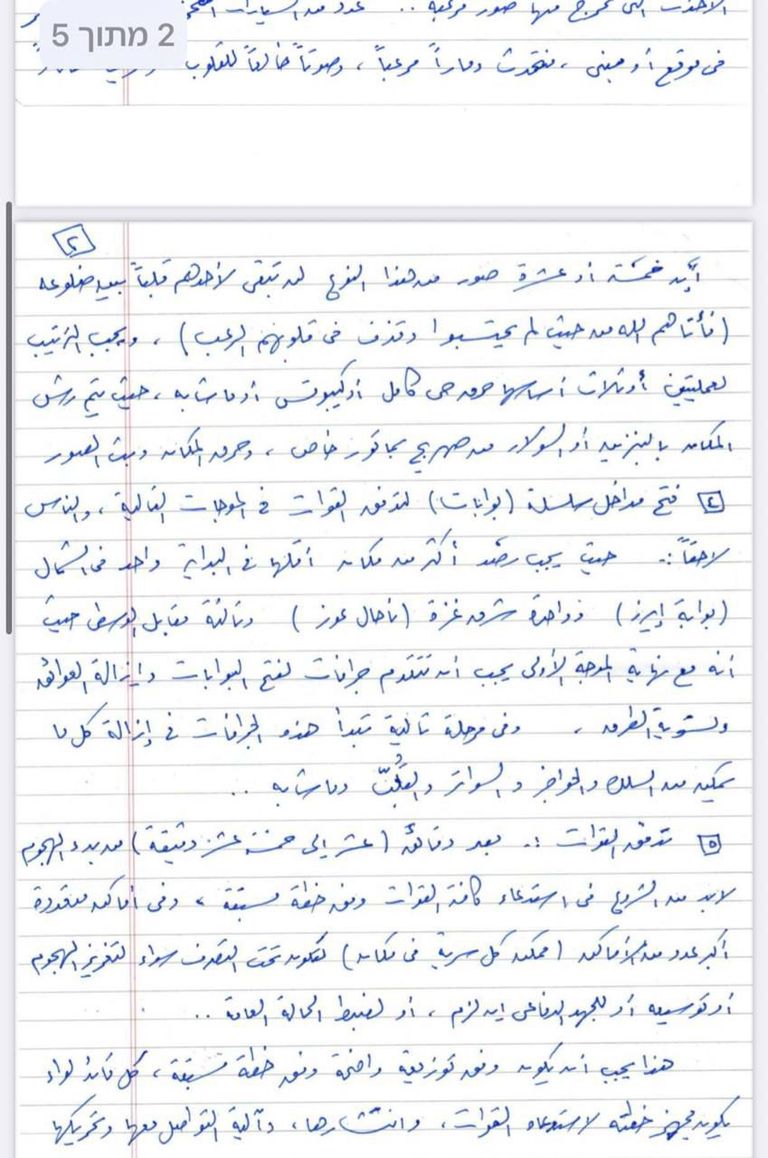 2 מתוך 5
فى موقع أو مبنى ، فتحدث دماراً مرعباً ، وصوتاً خالعاً للقلوب
٢
أيه خمسة أو عشرة صور من هذا النوع لن تبقى لأحدهم قلباً بين ضلوعه
(فأتاهم الله من حيث لم يحتسبوا وقذف فى قلوبهم الرعب) ، ويجب الترتيب
لعمليتين أو ثلاث أساسها حرق حى كامل أو كيبوتس أو ما شابه ، حيث يتم رش
المكان بالبنزين أو السولار من صهريج بماتور خاص ، وحرق المكان وبث الصور
٤ فتح مداخل سلسلة (بوابات) لتدفق القوات فى الموجات التالية ، والناس
لاحقاً :. حيث يجب رصد أكثر من مكان أقلها فى البداية واحد فى الشمال
(بوابة إيرز) وواحدة شرق غزة (ناحال عوز) وثالثة مقابل الوسطى حيث
أنه مع نهاية الموجة الأولى يجب أن تتقدم جرافات لفتح البوابات وإزالة العوائق
وتسوية الطرق ، وفى مرحلة تالية تبدأ هذه الجرافات فى إزالة كل ما
يمكن من السلك والحواجز والسواتر وما شابه ..
٥ تدفق القوات :. بعد دقائق (عشر إلى خمسة عشر دقيقة) من بدء الهجوم
لابد من الشروع فى استدعاء كافة القوات وفق خطة مسبقة ، وفى أماكن متعددة
أكبر عدد من الأماكن (ممكن كل سرية فى مكان) لتكون تحت التصرف سواء لتعزيز الهجوم
أو توسيعه أو للجهد الدفاعى إن لزم ، أو لضبط الحالة العامة ..
هذا يجب أن يكون وفق توزيعة واضحة وفق خطة مسبقة ، كل قائد لواء
يكون مجهز خطته لاستدعاء القوات ، وانتشارها ، وآلية التواصل معها وتحريكها